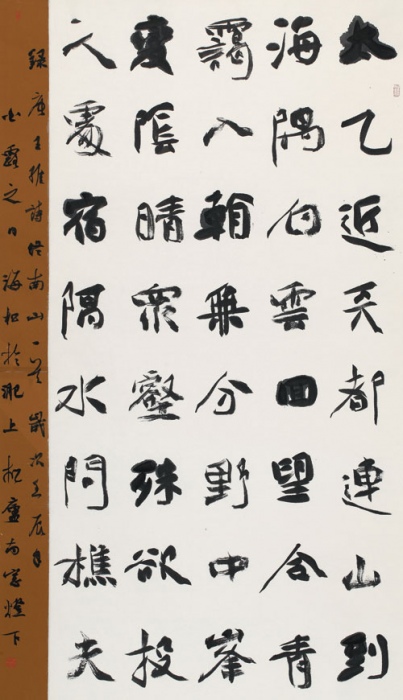 太乙近天都連山到
海隅白雲回望合青
靄入看無分野中峯
變陰晴眾壑殊欲投
人處宿隔水問樵夫
録唐王維詩終南山一首歲次壬辰年
白露之日海於肥上廬南窗燈下